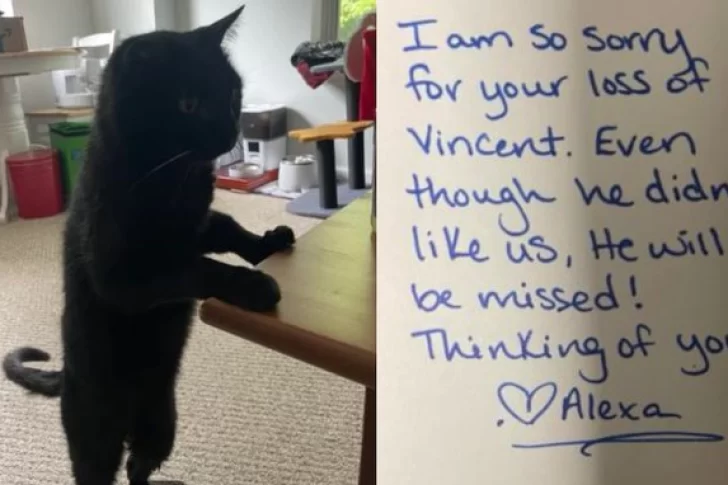 I am so sorry
for your loss of
Vincent. Even
though he didn
like us, He will
be missed!
Thinking of yo
♡ Alexa